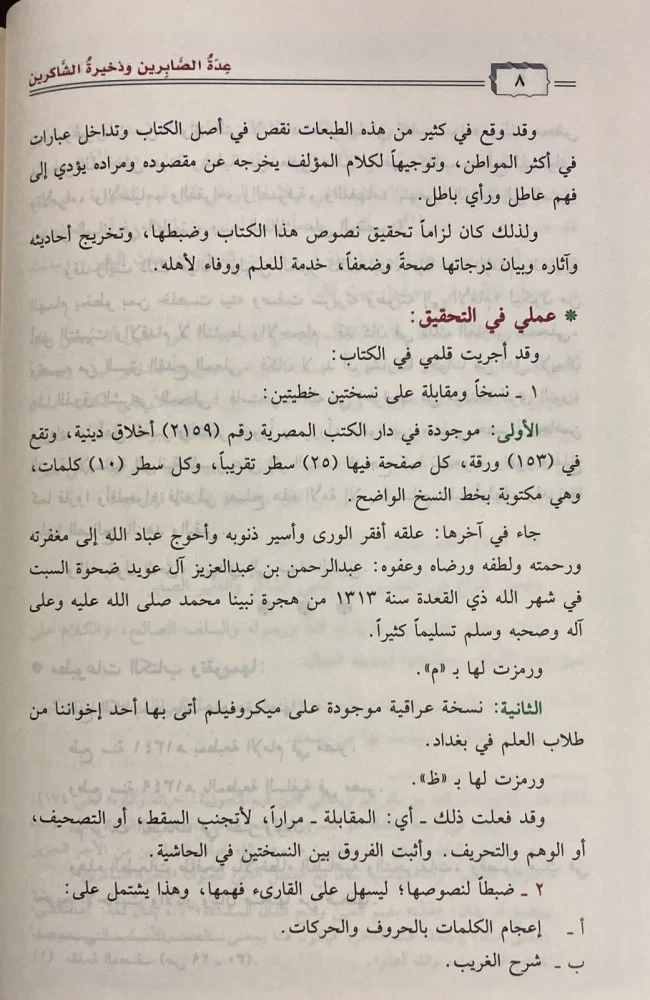 عِدَةُ الصَّابِرين وذخيرةُ الشَّاكرين
٨
وقد وقع في كثير من هذه الطبعات نقص في أصل الكتاب وتداخل عبارات
في أكثر المواطن، وتوجيهاً لكلام المؤلف يخرجه عن مقصوده ومراده يؤدي إلى
فهم عاطل ورأي باطل.
ولذلك كان لزاماً تحقيق نصوص هذا الكتاب وضبطها، وتخريج أحاديثه
وآثاره وبيان درجاتها صحةً وضعفاً، خدمة للعلم ووفاء لأهله.
* عملي في التحقيق:
وقد أجريت قلمي في الكتاب:
١ ـ نسخاً ومقابلة على نسختين خطيتين:
الأولى: موجودة في دار الكتب المصرية رقم (٢١٥٩) أخلاق دينية، وتقع
في (١٥٣) ورقة، كل صفحة فيها (٢٥) سطر تقريباً، وكل سطر (١٠) كلمات،
وهي مكتوبة بخط النسخ الواضح.
جاء في آخرها: علقه أفقر الورى وأسير ذنوبه وأحوج عباد الله إلى مغفرته
ورحمته ولطفه ورضاه وعفوه: عبدالرحمن بن عبدالعزيز آل عويد ضحوة السبت
في شهر الله ذي القعدة سنة ١٣١٣ من هجرة نبينا محمد صلى الله عليه وعلى
آله وصحبه وسلم تسليماً كثيراً.
ورمزت لها بـ «م».
الثانية: نسخة عراقية موجودة على ميكروفيلم أتى بها أحد إخواننا من
طلاب العلم في بغداد.
ورمزت لها بـ «ظ».
وقد فعلت ذلك ـ أي: المقابلة ـ مراراً، لأتجنب السقط، أو التصحيف،
أو الوهم والتحريف. وأثبت الفروق بين النسختين في الحاشية.
٢ ـ ضبطاً لنصوصها؛ ليسهل على القارىء فهمها، وهذا يشتمل على:
أ ـ إعجام الكلمات بالحروف والحركات.
ب ـ شرح الغريب.